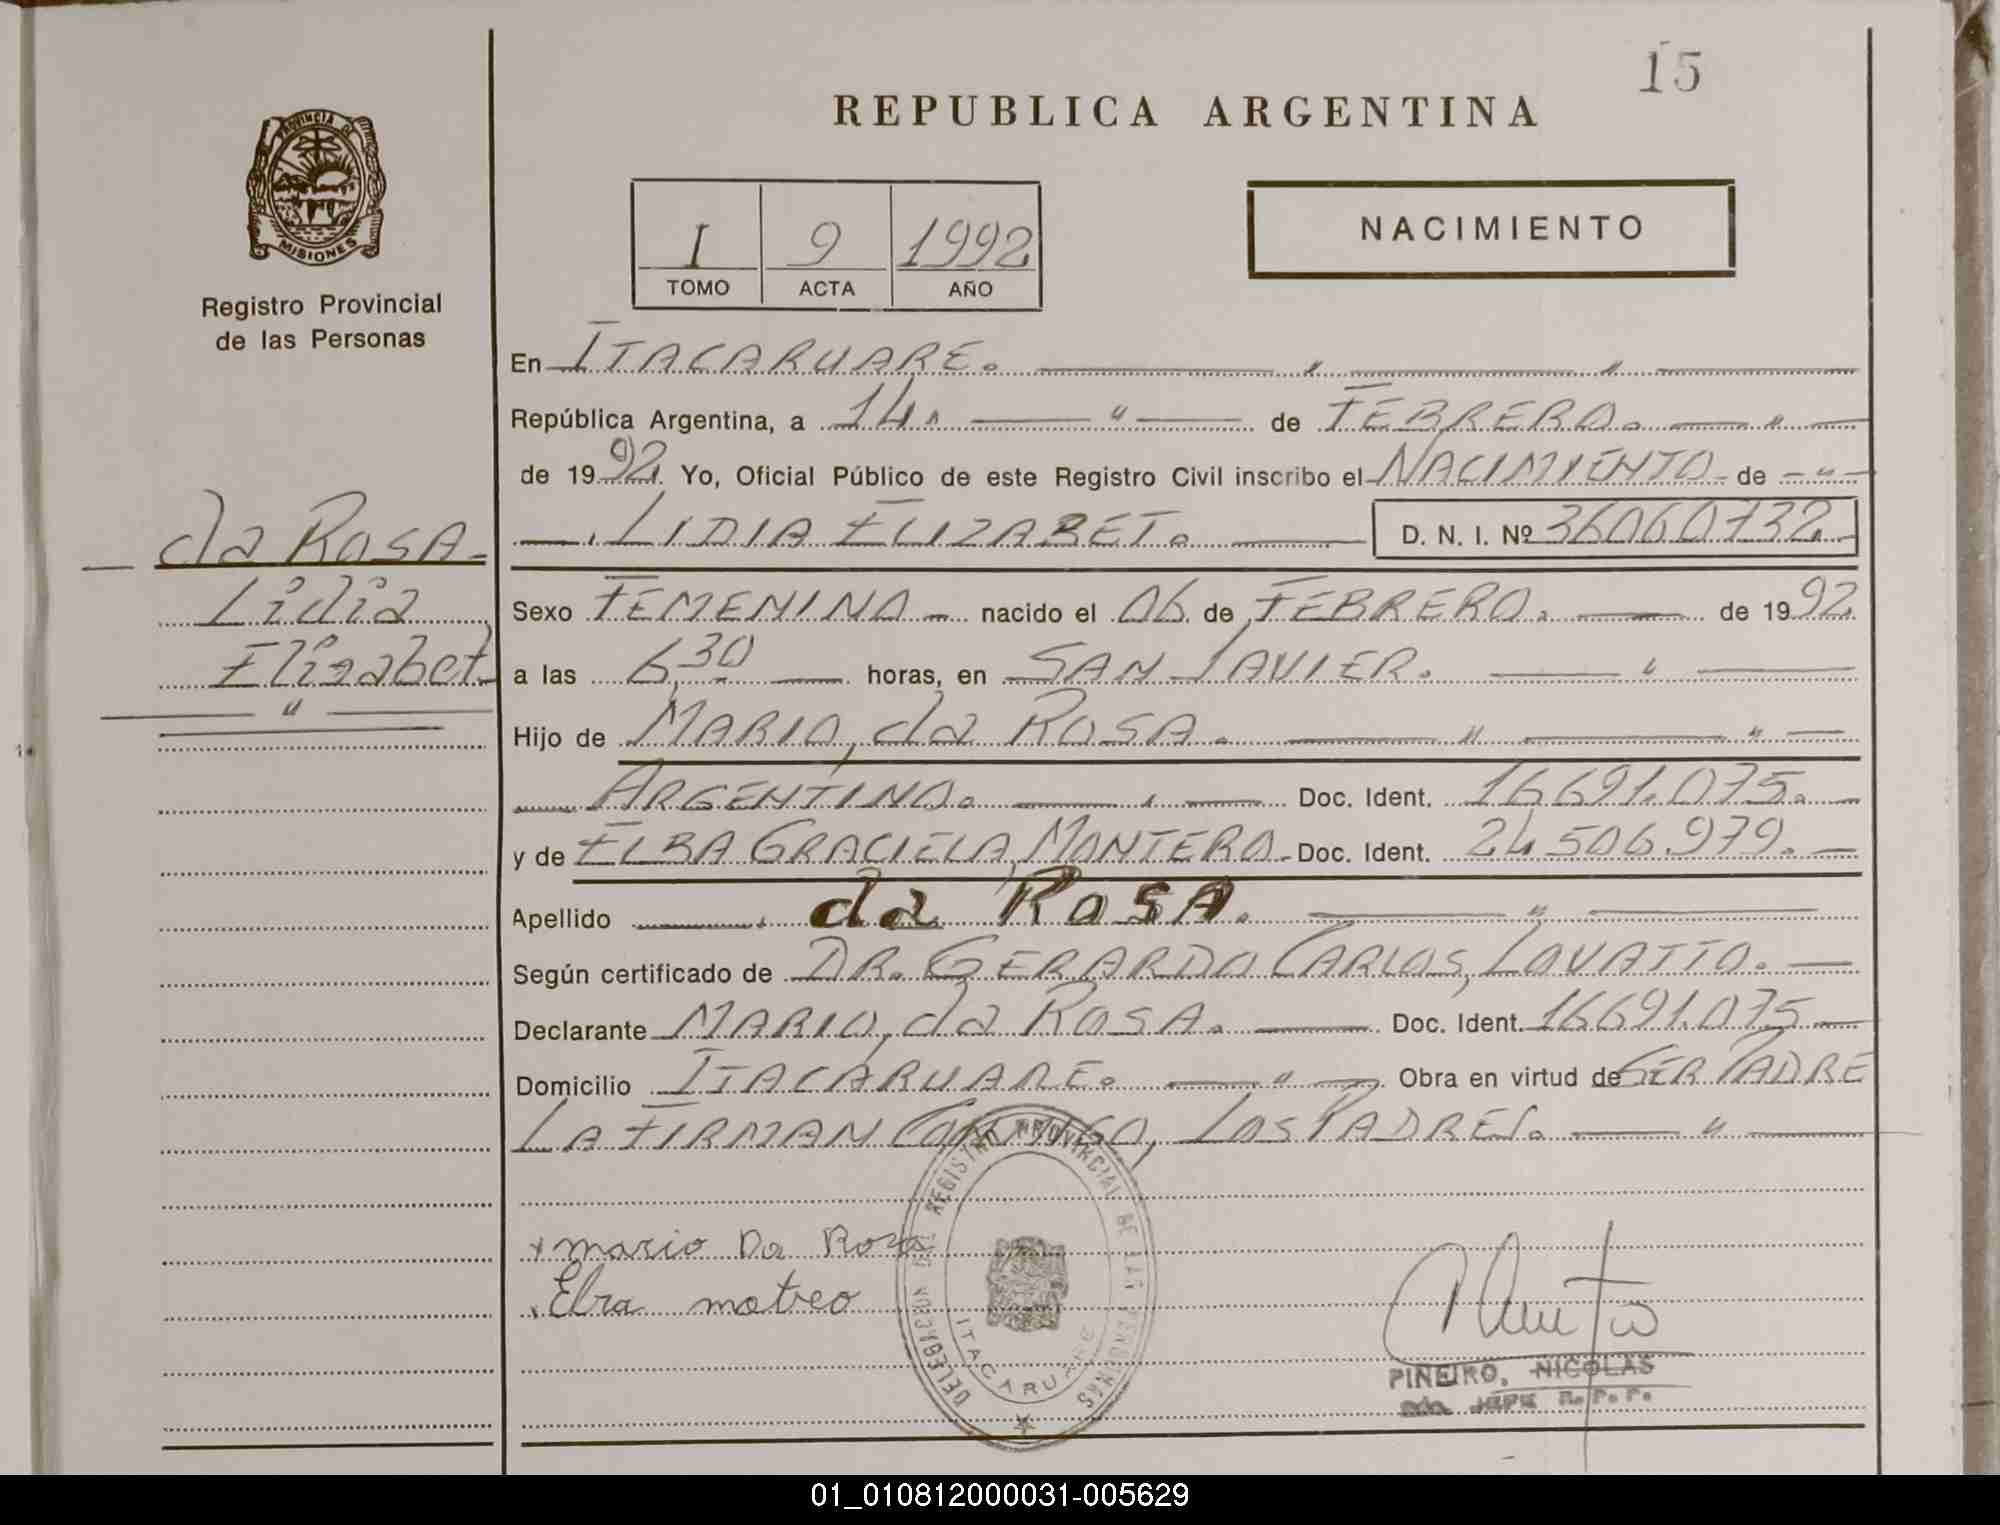 15
REPUBLICA ARGENTINA
PROVINCIA DE
MISIONES
Registro Provincial
de las Personas
I 9 1992
TOMO ACTA AÑO
NACIMIENTO
da ROSA
Lidia
Elizabet
En ITACARUARE.
República Argentina, a 14. de FEBRERO.
de 1992. Yo, Oficial Público de este Registro Civil inscribo el NACIMIENTO de
LIDIA ELIZABET. D. N. I. Nº 36060732
Sexo FEMENINO nacido el 06 de FEBRERO. de 1992
a las 6,30 horas, en SAN JAVIER.
Hijo de MARIO, da ROSA.
ARGENTINO. Doc. Ident. 16691.075.
y de ELBA GRACIELA, MONTERO Doc. Ident. 24.506.979.
Apellido da ROSA.
Según certificado de DR. GERARDO CARLOS, LOVATTO.
Declarante MARIO, da ROSA. Doc. Ident. 16691.075
Domicilio ITACARUARE. Obra en virtud de SER PADRE
LA FIRMAN CONMIGO, LOS PADRES.
REGISTRO PROVINCIAL DE LAS PERSONAS
DELEGACION
ITACARUARE
x mario Da Rosa
Elva
PIÑEIRO, NICOLAS
JEFE R.P.P.
01_010812000031-005629